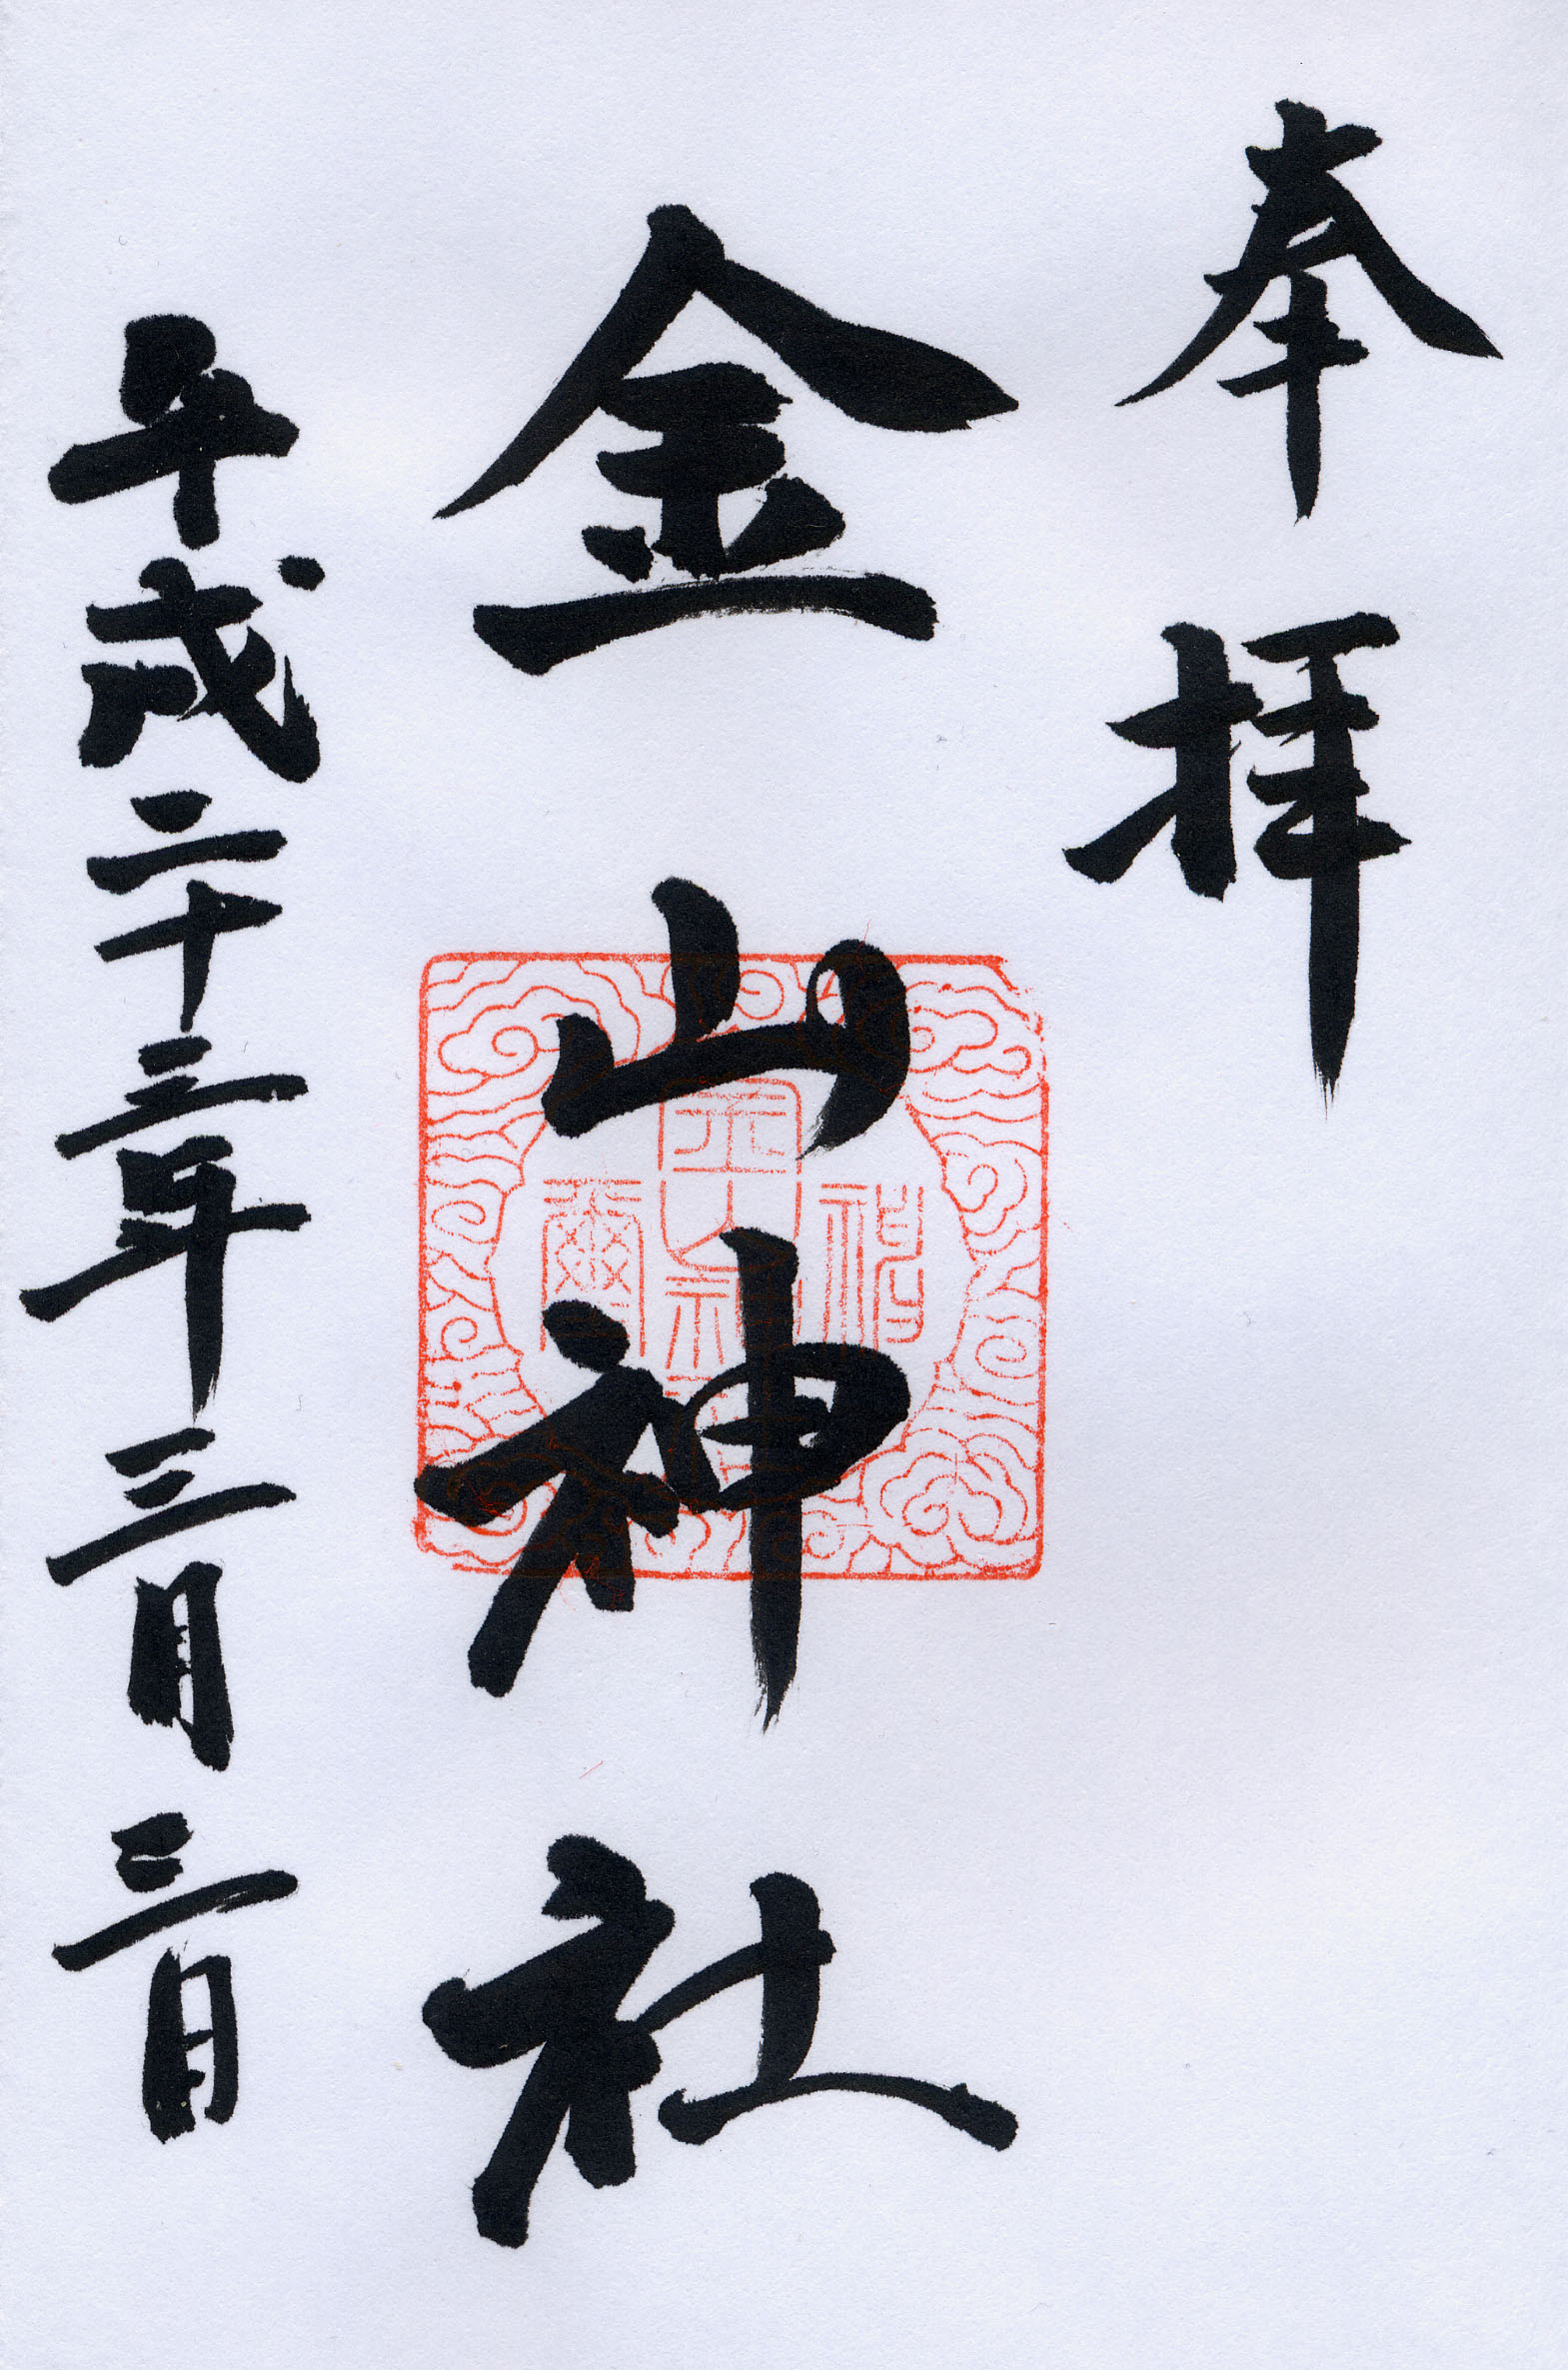 奉拝
金山神社
平成二十三年三月三日